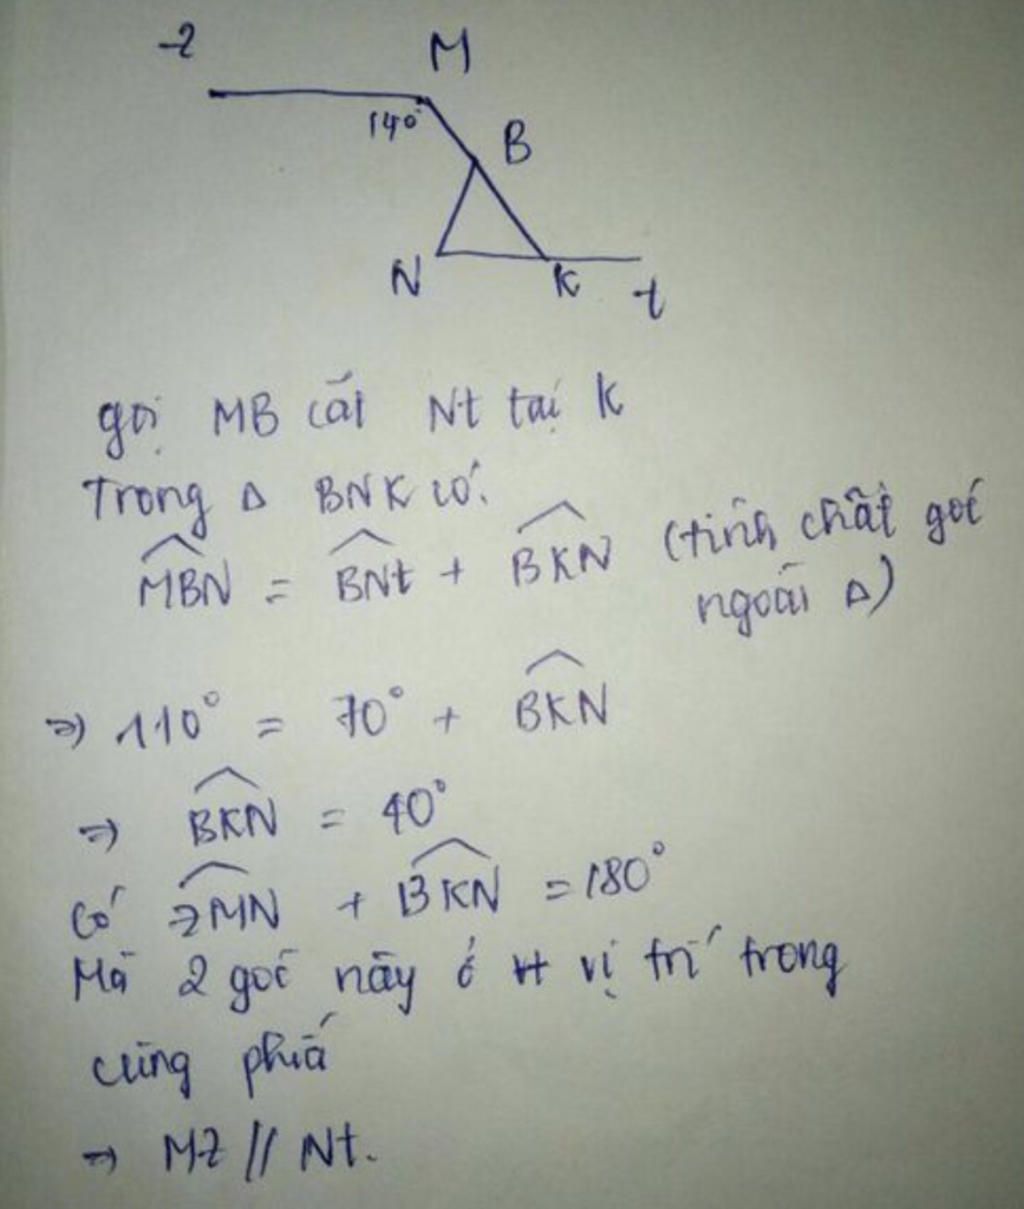 z M
140°
B
N K t
gọi MB cắt Nt tại K
Trong Δ BNK có:
MBN = BNt + BKN (tính chất góc
ngoài Δ)
=> 110° = 70° + BKN
=> BKN = 40°
Có zMN + BKN = 180°
Mà 2 góc này ở vị trí trong
cùng phía
=> Mz // Nt.